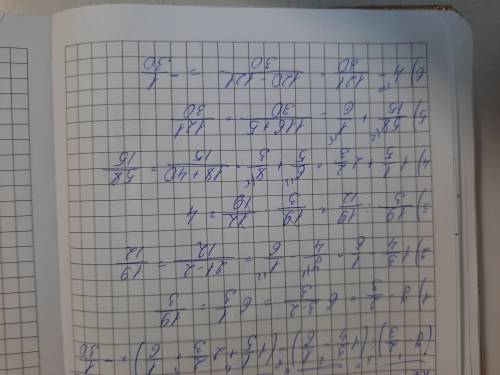 (7 - 2/3) : (1 3/4 - 1/6) - (1 1/5 + 2 2/3 + 1/6) = - 1/30
1) 7 - 2/3 = 6 3-2/3 = 6 1/3 = 19/3
2) 1 3/4 - 1/6 = 7/4 - 1/6 = 21-2/12 = 19/12
3) 19/3 : 19/12 = 19/3 · 12/19 = 4
4) 1 1/5 + 2 2/3 = 6/5 + 8/3 = 18+40/15 = 58/15
5) 58/15 + 1/6 = 116+5/30 = 121/30
6) 4 - 121/30 = 120-121/30 = - 1/30